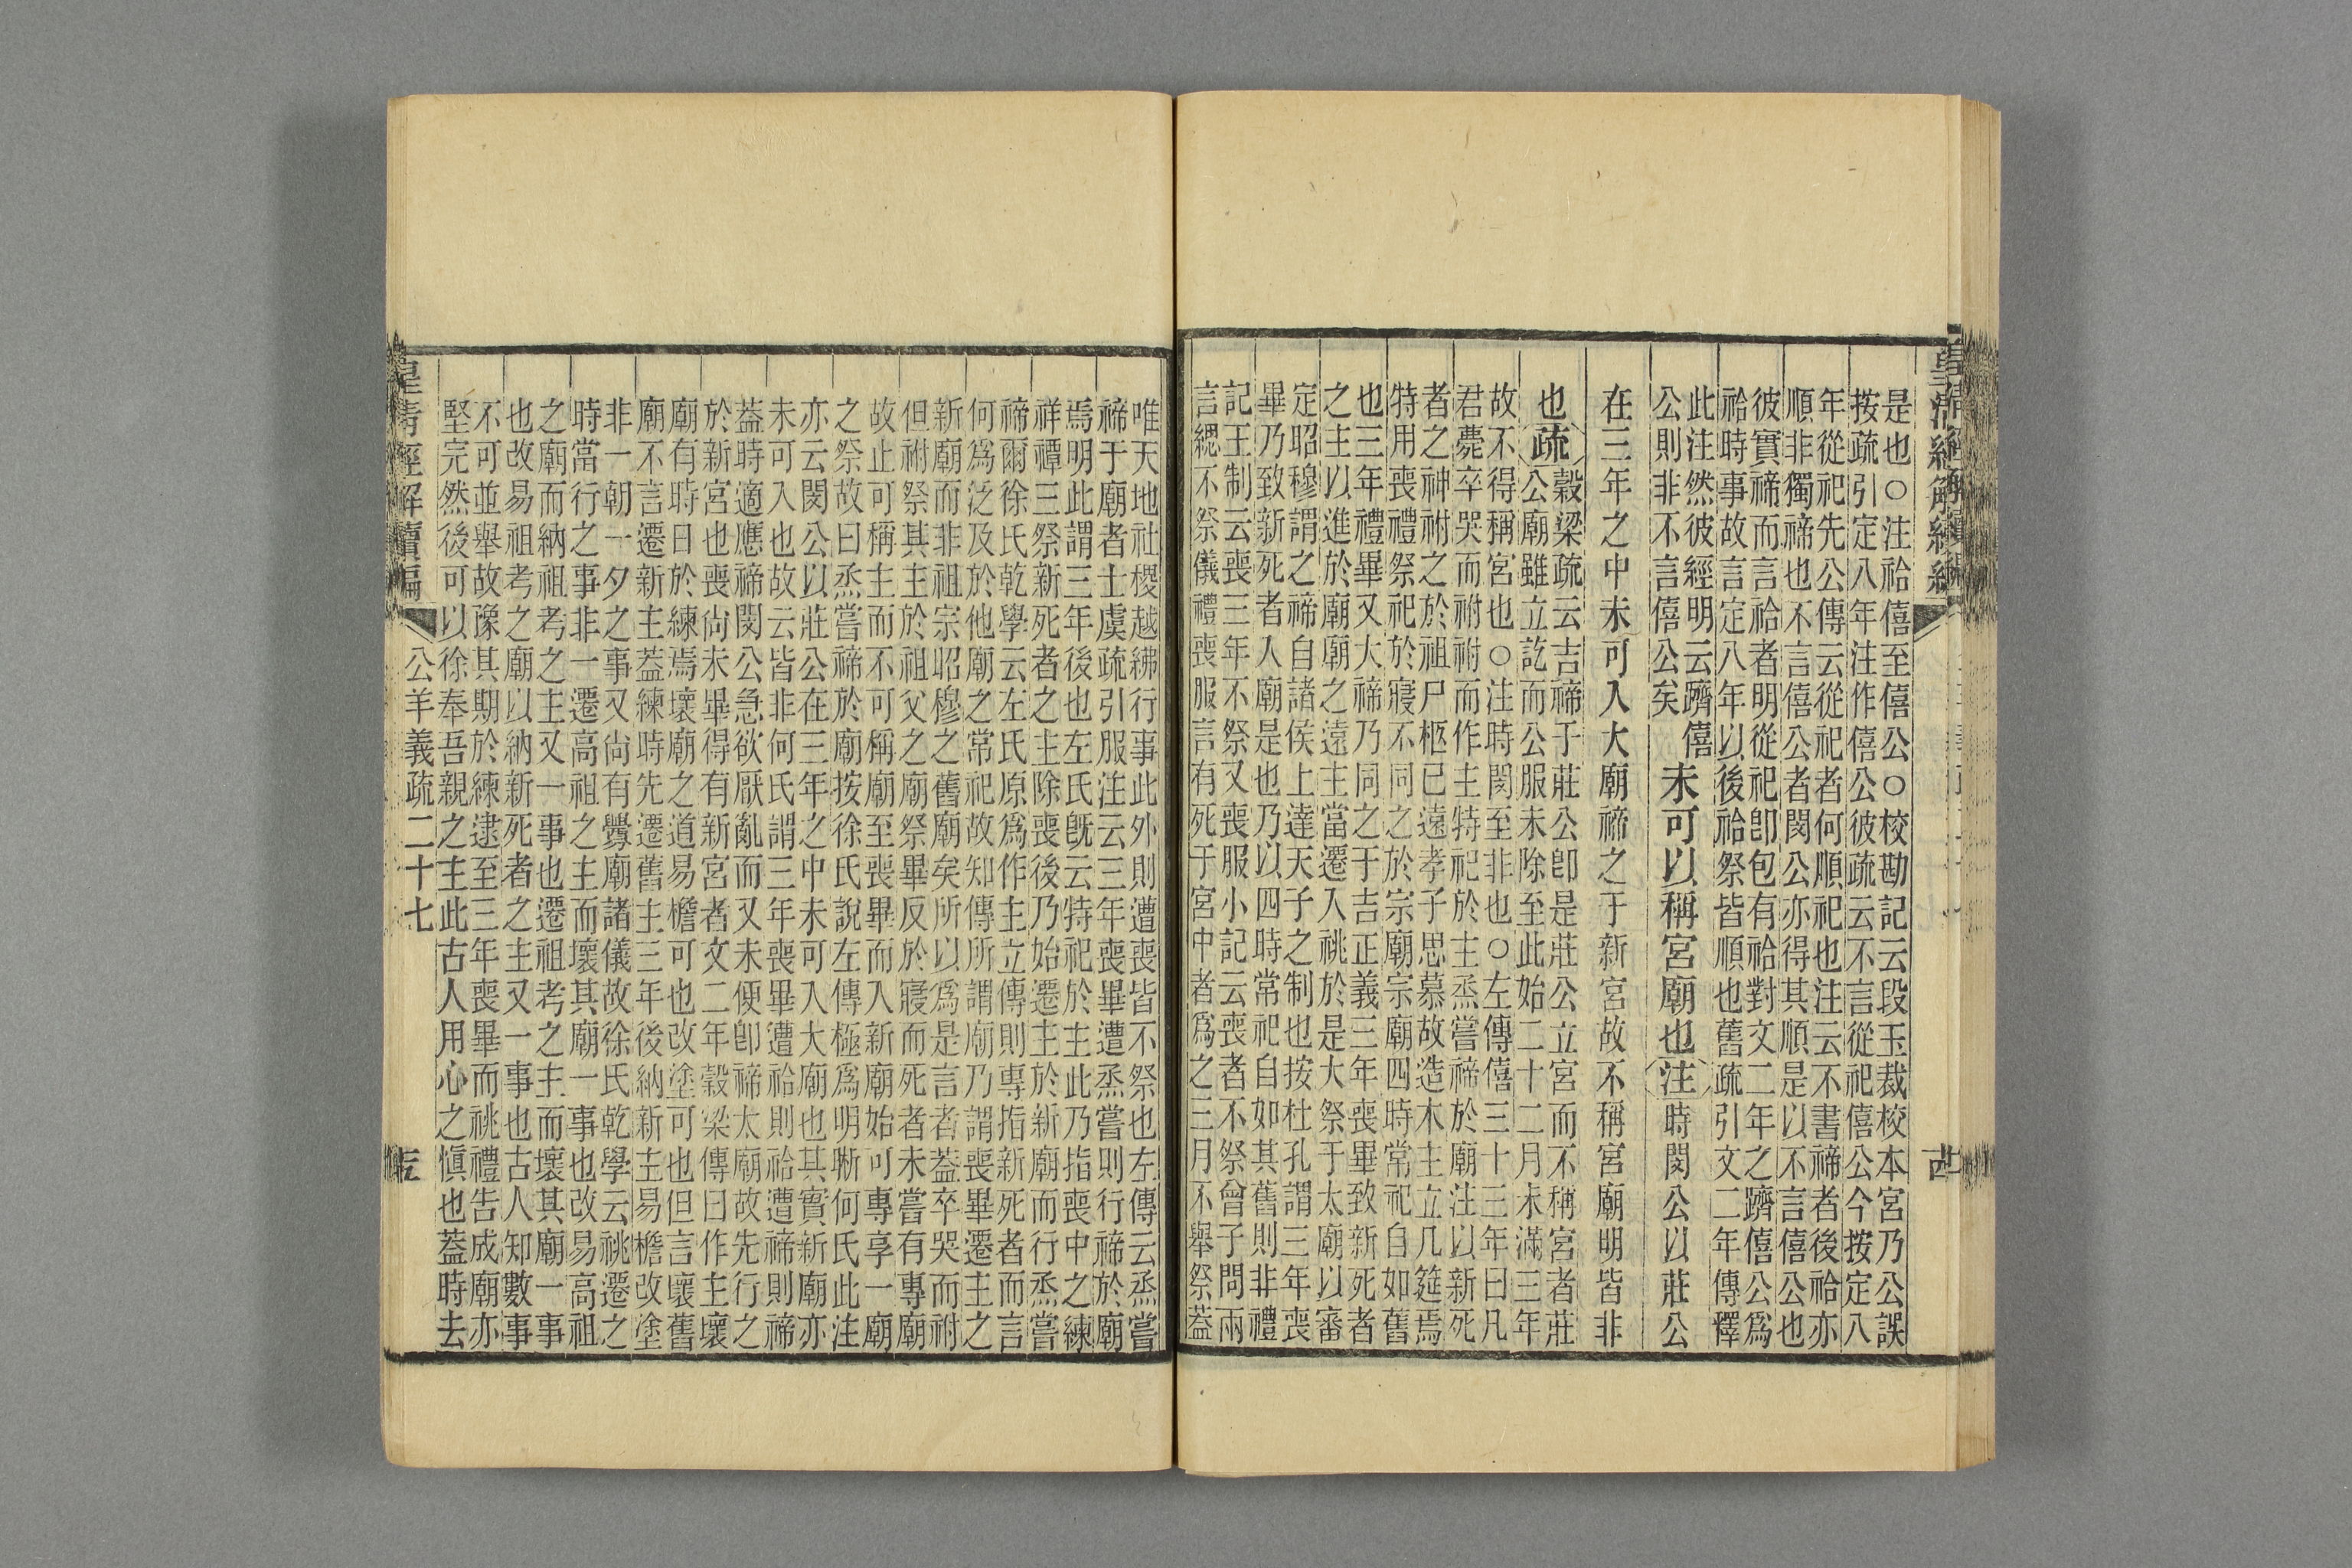 是也○注祫僖至僖公○校勘記云段玉裁校本宮乃公誤
按疏引定八年注作僖公彼疏云不言從祀僖公今按定八
年從祀先公傳云從祀者何順祀也注云不書禘者後祫亦
順非獨禘也不言僖公者閔公亦得其順是以不言僖公也
彼實禘而言祫者明從祀卽包有祫對文二年之躋僖公爲
祫時事故言定八年以後祫祭皆順也舊疏引文二年傳釋
此注然彼經明云躋僖
公則非不言僖公矣
未可以稱宮廟也注時閔公以莊公
在三年之中未可入大廟禘之于新宮故不稱宮廟明皆非
也疏
穀梁疏云吉禘于莊公卽是莊公立宮而不稱宮者莊
公廟雖立訖而公服未除至此始二十二月未滿三年
故不得稱宮也○注時閔至非也○左傳僖三十三年曰凡
君薨卒哭而祔祔而作主特祀於主烝嘗禘於廟注以新死
者之神祔之於祖尸柩已遠孝子思慕故造木主立几筵焉
特用喪禮祭祀於寢不同之於宗廟宗廟四時常祀自如舊
也三年禮畢又大禘乃同之于吉正義三年喪畢致新死者
之主以進於廟廟之遠主當遷入祧於是大祭于太廟以審
定昭穆謂之禘自諸侯上達天子之制也按杜孔謂三年喪
畢乃致新死者入廟是也乃以四時常祀自如其舊則非禮
記王制云喪三年不祭又喪服小記云喪者不祭曾子問兩
言緦不祭儀禮喪服言有死于宮中者爲之三月不舉祭蓋
唯天地社稷越紼行事此外則遭喪皆不祭也左傳云烝嘗
禘于廟者士虞疏引服注云三年喪畢遭烝嘗則行禘於廟
焉明此謂三年後也左氏旣云特祀於主此乃指喪中之練
祥禫三祭新死者之主除喪後乃始遷主於新廟而行烝嘗
禘爾徐氏乾學云左氏原爲作主立傳則專指新死者而言
何爲泛及於他廟之常祀故知傳所謂廟乃謂喪畢遷主之
新廟而非祖宗昭穆之舊廟矣所以爲是言者蓋卒哭而祔
但祔祭其主於祖父之廟祭畢反於寢而死者未嘗有專廟
故止可稱主而不可稱廟至喪畢而入新廟始可專享一廟
之祭故曰烝嘗禘於廟按徐氏說左傳極爲明晰何氏此注
亦云閔公以莊公在三年之中未可入大廟也其實新廟亦
未可入也故云皆非何氏謂三年喪畢遭祫則祫遭禘則禘
蓋時適應禘閔公急欲厭亂而又未便卽禘太廟故先行之
於新宮也喪尙未畢得有新宮者文二年穀梁傳曰作主壞
廟有時日於練焉壞廟之道易檐可也改塗可也但言壞舊
廟不言遷新主蓋練時先遷舊主三年後納新主易檐改塗
非一朝一夕之事又尙有釁廟諸儀故徐氏乾學云祧遷之
時當行之事非一遷高祖之主而壞其廟一事也改易高祖
之廟而納祖考之主又一事也遷祖考之主而壞其廟一事
也改易祖考之廟以納新死者之主又一事也古人知數事
不可並舉故豫其期於練逮至三年喪畢而祧禮告成廟亦
堅完然後可以徐奉吾親之主此古人用心之愼也蓋時去
皇淸經解續編
公羊義疏二十七